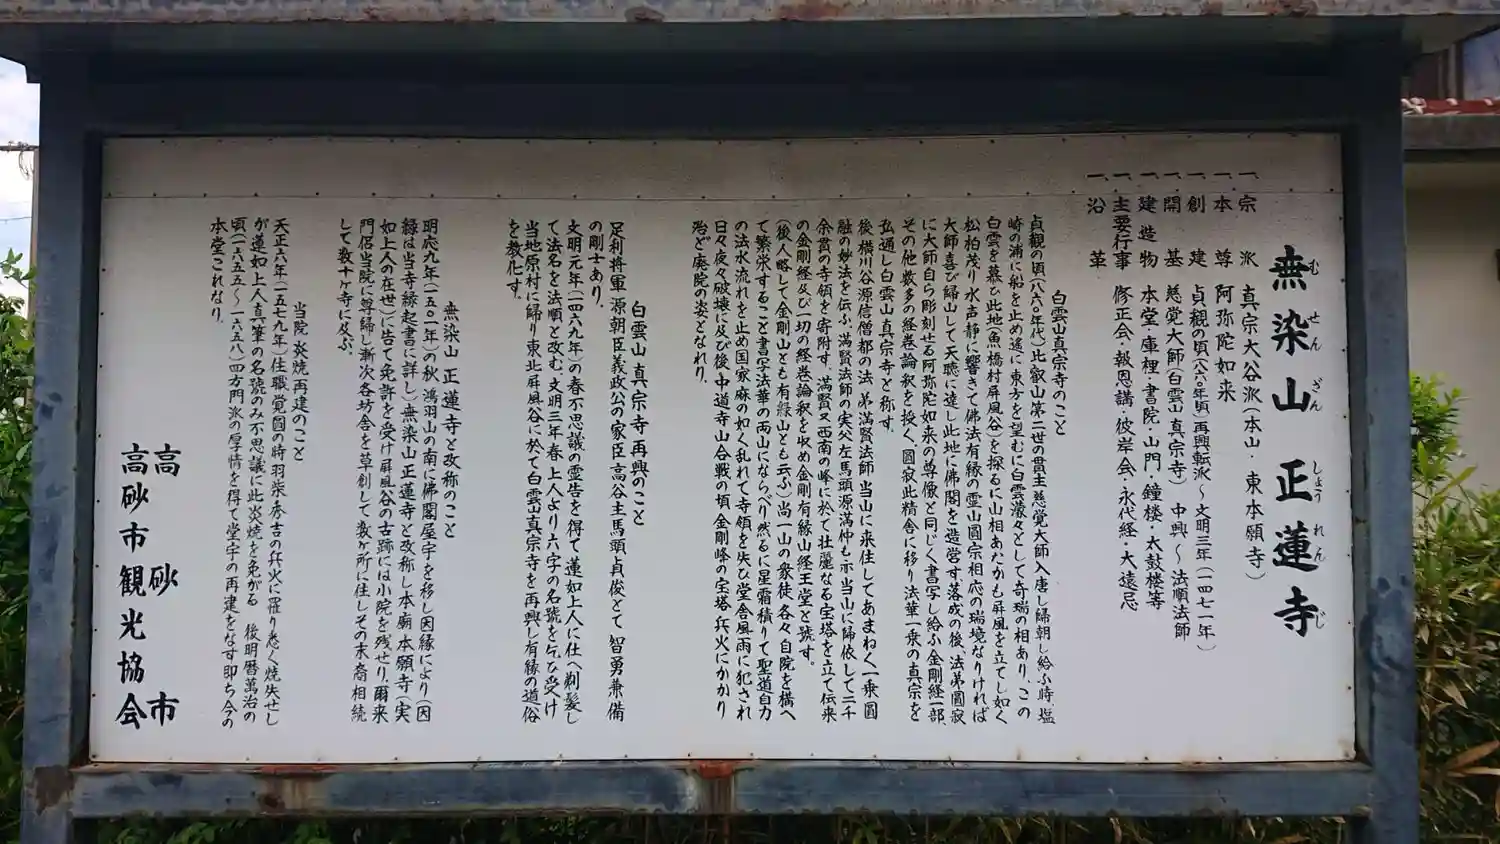 無染山 正蓮寺
むせんざん しょうれんじ
一、宗派 真宗大谷派(本山・東本願寺)
一、本尊 阿弥陀如来
一、創建 貞観の頃(八六〇年頃)再興転派〜文明三年(一四七一年)
一、開基 慈覚大師(白雲山真宗寺) 中興〜法順法師
一、建造物 本堂・庫裡・書院・山門・鐘楼・太鼓楼等
一、主要行事 修正会・報恩講・彼岸会・永代経・大遠忌
一、沿革
白雲山真宗寺のこと
貞観の頃(八六〇年代)比叡山第二世の貫主慈覚大師入唐し帰朝し給ふ時、塩
崎の浦に船を止め遙に東方を望むに白雲濛々として奇瑞の相あり、この
白雲を慕ひ此地(魚橋村屏風谷)を探るに山相あたかも屏風を立てし如く
松柏茂り水声静に響きて佛法有縁の霊山圓宗相応の瑞境なりければ
大師喜び帰山して天聴に達し此地に佛閣を造営す落成の後、法弟圓寂
に大師自ら彫刻せる阿弥陀如来の尊像と同じく書写し給ふ金剛経一部、
その他数多の経巻論釈を授く、圓寂此精舎に移り法華一乗の真宗を
弘通し白雲山真宗寺と称す。
後横川谷源信僧都の法弟満賢法師当山に来住してあまねく一乗圓
融の妙法を伝ふ、満賢法師の実父左馬頭源満仲も亦当山に帰依して二千
余貫の寺領を寄附す、満賢又西南の峰に於て壮麗なる宝塔を立て伝来
の金剛経及び一切の経巻論釈を収め金剛有縁山経王堂と號す。
(後人略して金剛山とも有縁山とも云ふ)当一山の衆徒各々自院を構へ
て繁栄すること書写法華の両山にならべり然るに星霜積りて聖道自力
の法水流れを止め国家麻の如く乱れて寺領を失ひ堂舎風雨に犯され
日々夜々破壊に及び後中道寺山合戦の頃金剛峰の宝塔兵火にかかり
殆ど廃院の姿となれり。
白雲山真宗寺再興のこと
足利将軍源朝臣義政公の家臣高谷主馬頭貞俊とて智勇兼備
の剛士あり、
文明元年(一四六九年)の春不思議の霊告を得て蓮如上人に仕へ剃髪し
て法名を法順と改む、文明三年春上人より六字の名號を乞ひ受け
当地原村に帰り東北屏風谷に於て白雲山真宗寺を再興し有縁の道俗
を教化す。
無染山正蓮寺と改称のこと
明応九年(一五〇一年)の秋、鴻羽山の南に佛閣屋宇を移し因縁により(因
縁は当寺縁起書に詳し)無染山正蓮寺と改称し本廟本願寺(実
如上人の在世)に告て免許を受け屏風谷の古跡には小院を残せり、爾来
門侶当院に尊帰し漸次各坊舎を草創して数ヶ所に住しその末裔相続
して数十ヶ寺に及ぶ。
当院炎焼再建のこと
天正六年(一五七九年)住職覚圓の時羽柴秀吉の兵火に罹り悉く焼失せし
が蓮如上人真筆の名號のみ不思議に此炎焼を免がる 後明暦萬治の
頃(一六五五〜一六五八)四方門派の厚情を得て堂宇の再建をなす即ち今の
本堂これなり。
高砂市
高砂市観光協会